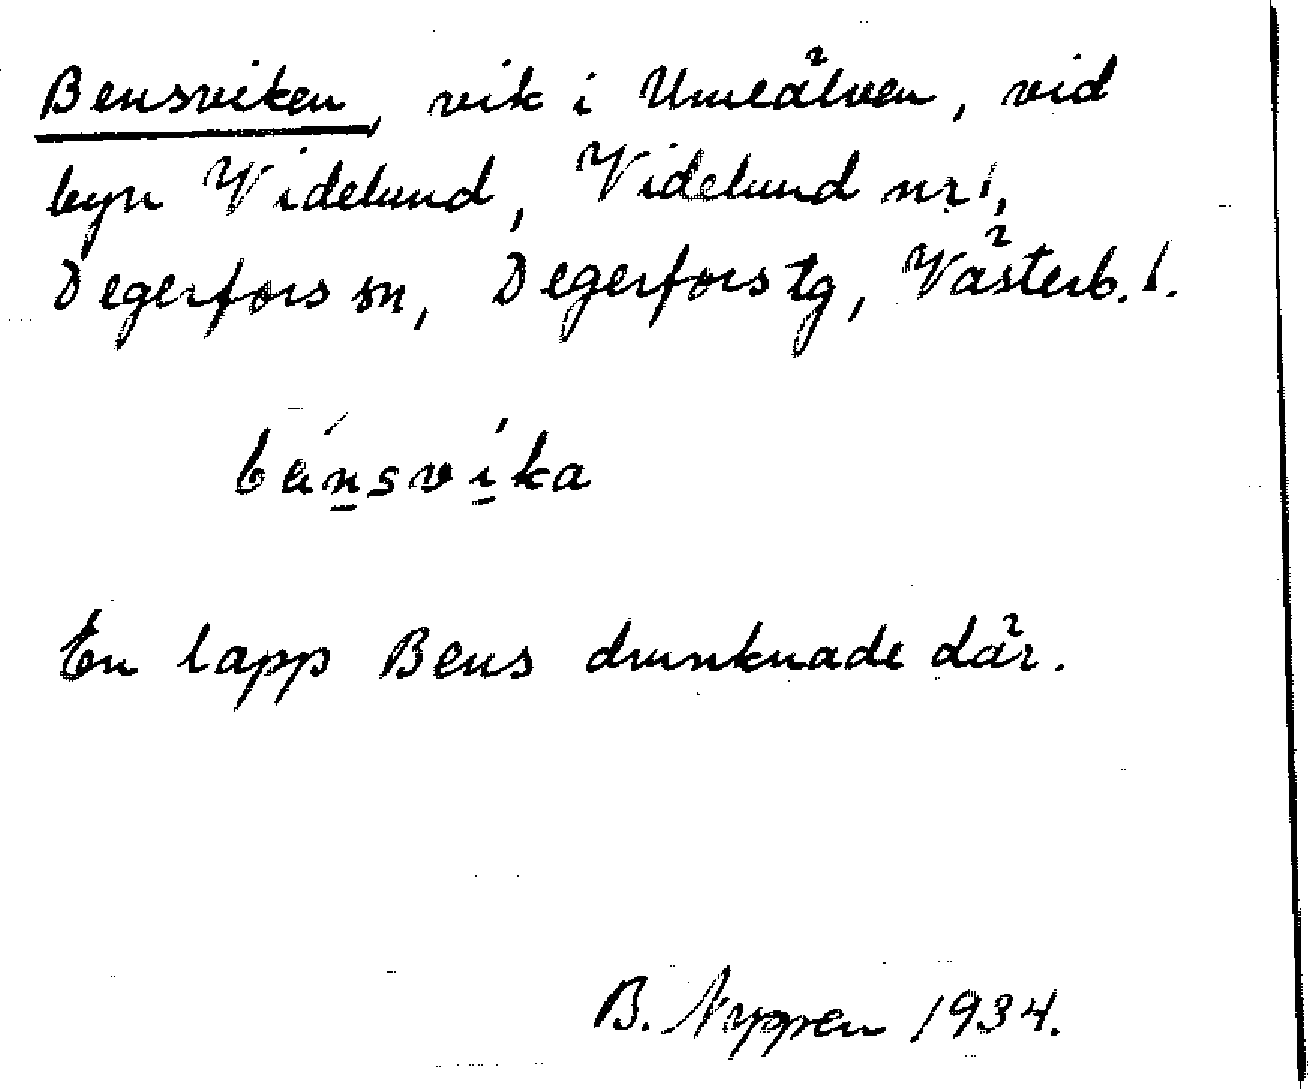 Bensviken, vik i Umeälven, vid
byn Videlund, Videlund nr 1,
Degerfors sn, Degerfors tg, Västerb. l.
bénsvíka
En lapp Bens drunknade där.
B. Nyppen 1934.